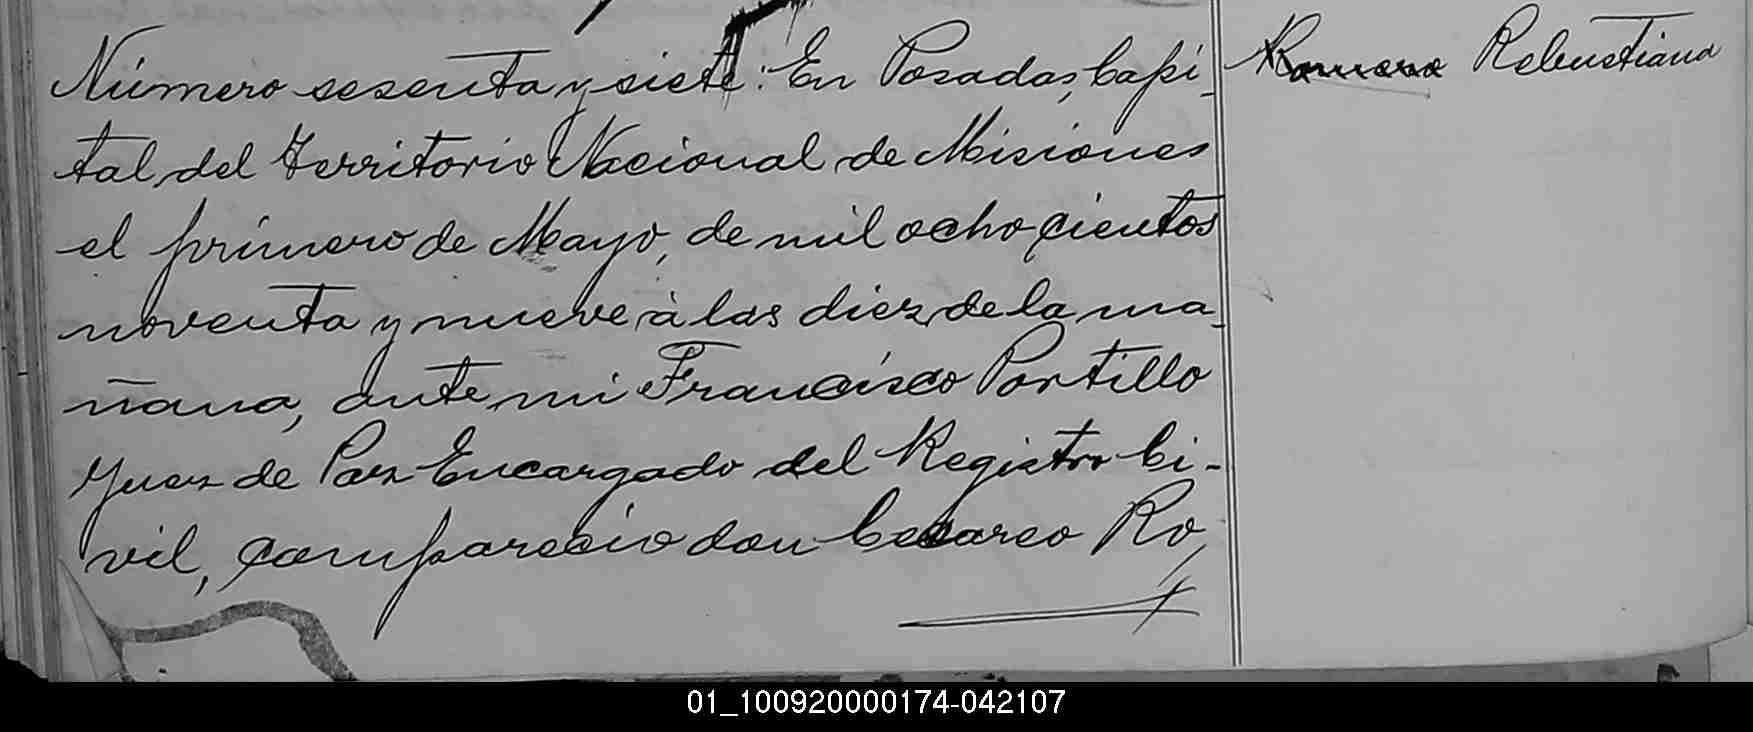 Número sesenta y siete: En Posadas, Capi-
tal del Territorio Nacional de Misiones
el primero de Mayo, de mil ochocientos
noventa y nueve, à las diez de la ma-
ñana, ante mi Francisco Portillo
Juez de Paz Encargado del Registro Ci-
vil, compareció don Cesareo Ro,
Romero Rebustiana
01_100920000174-042107